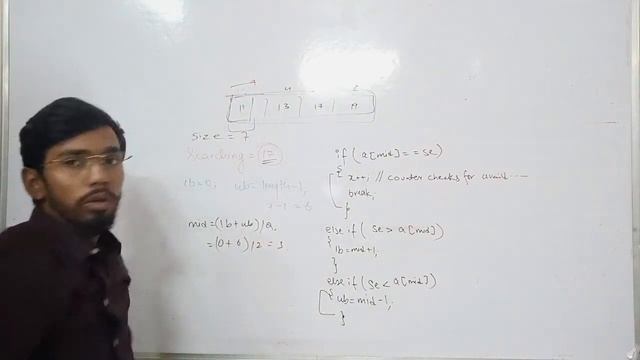 11 13 17 19
size = 7
Searching =
lb=0, ub=
7-1=6
mid=(lb+ub)/2,
=(0+6)/2=3
if (a[mid]==se)
{
x++; // counter checks for
break;
}
else if (se>a[mid])
{
lb=mid+1;
}
else if (se<a[mid])
{
ub=mid-1;
}